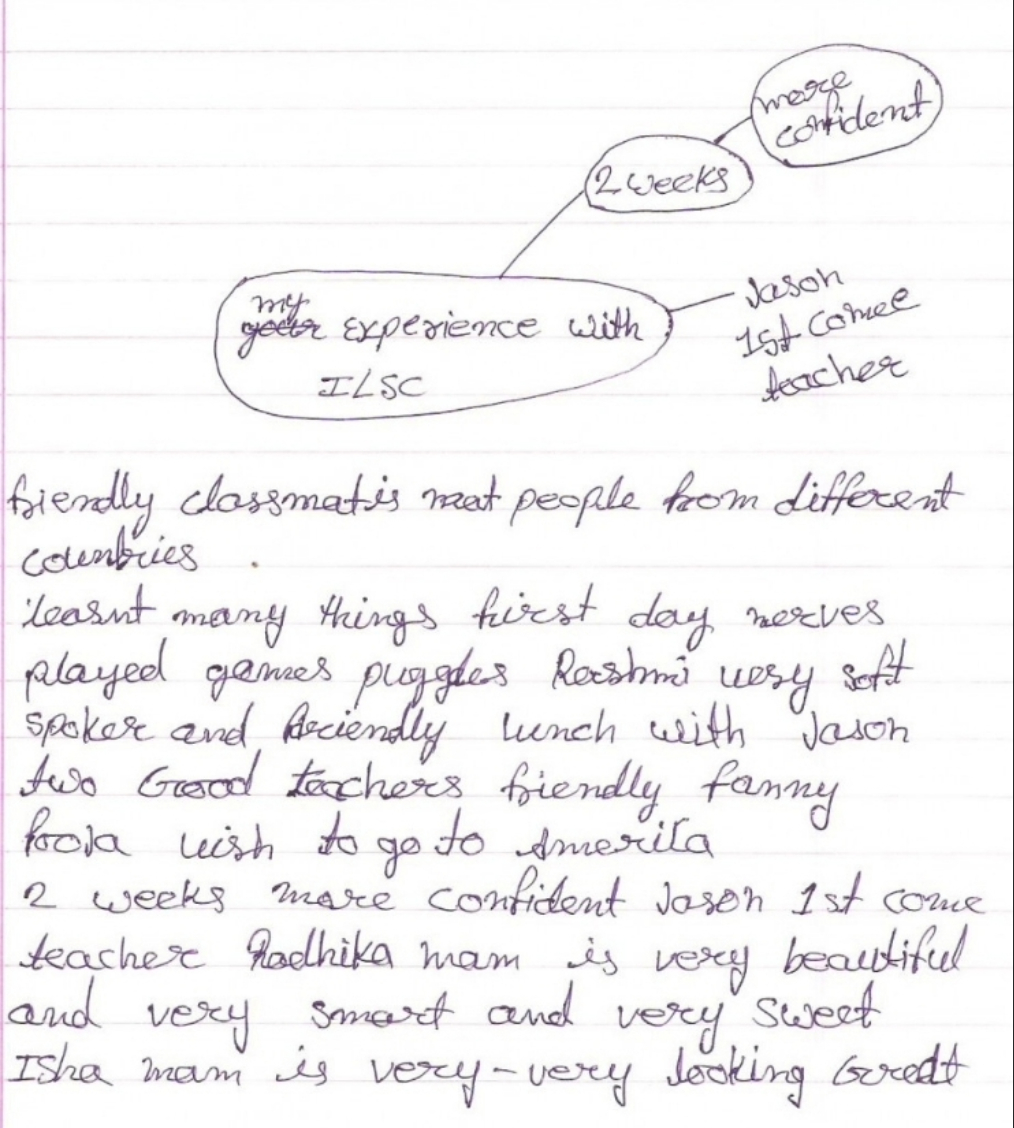 more
confident
2 weeks
my
your Experience with
ILSC
Jason
1st comee
teacher
friendly classmatis meat people from different
countries
learnt many things first day nerves
played games puggles Rashmi very soft
spoker and friendly lunch with Jason
two Good teachers friendly fanny
Pooja wish to go to America
2 weeks more confident Jason 1st come
teacher Radhika mam is very beautiful
and very smart and very sweet
Isha mam is very-very looking Great